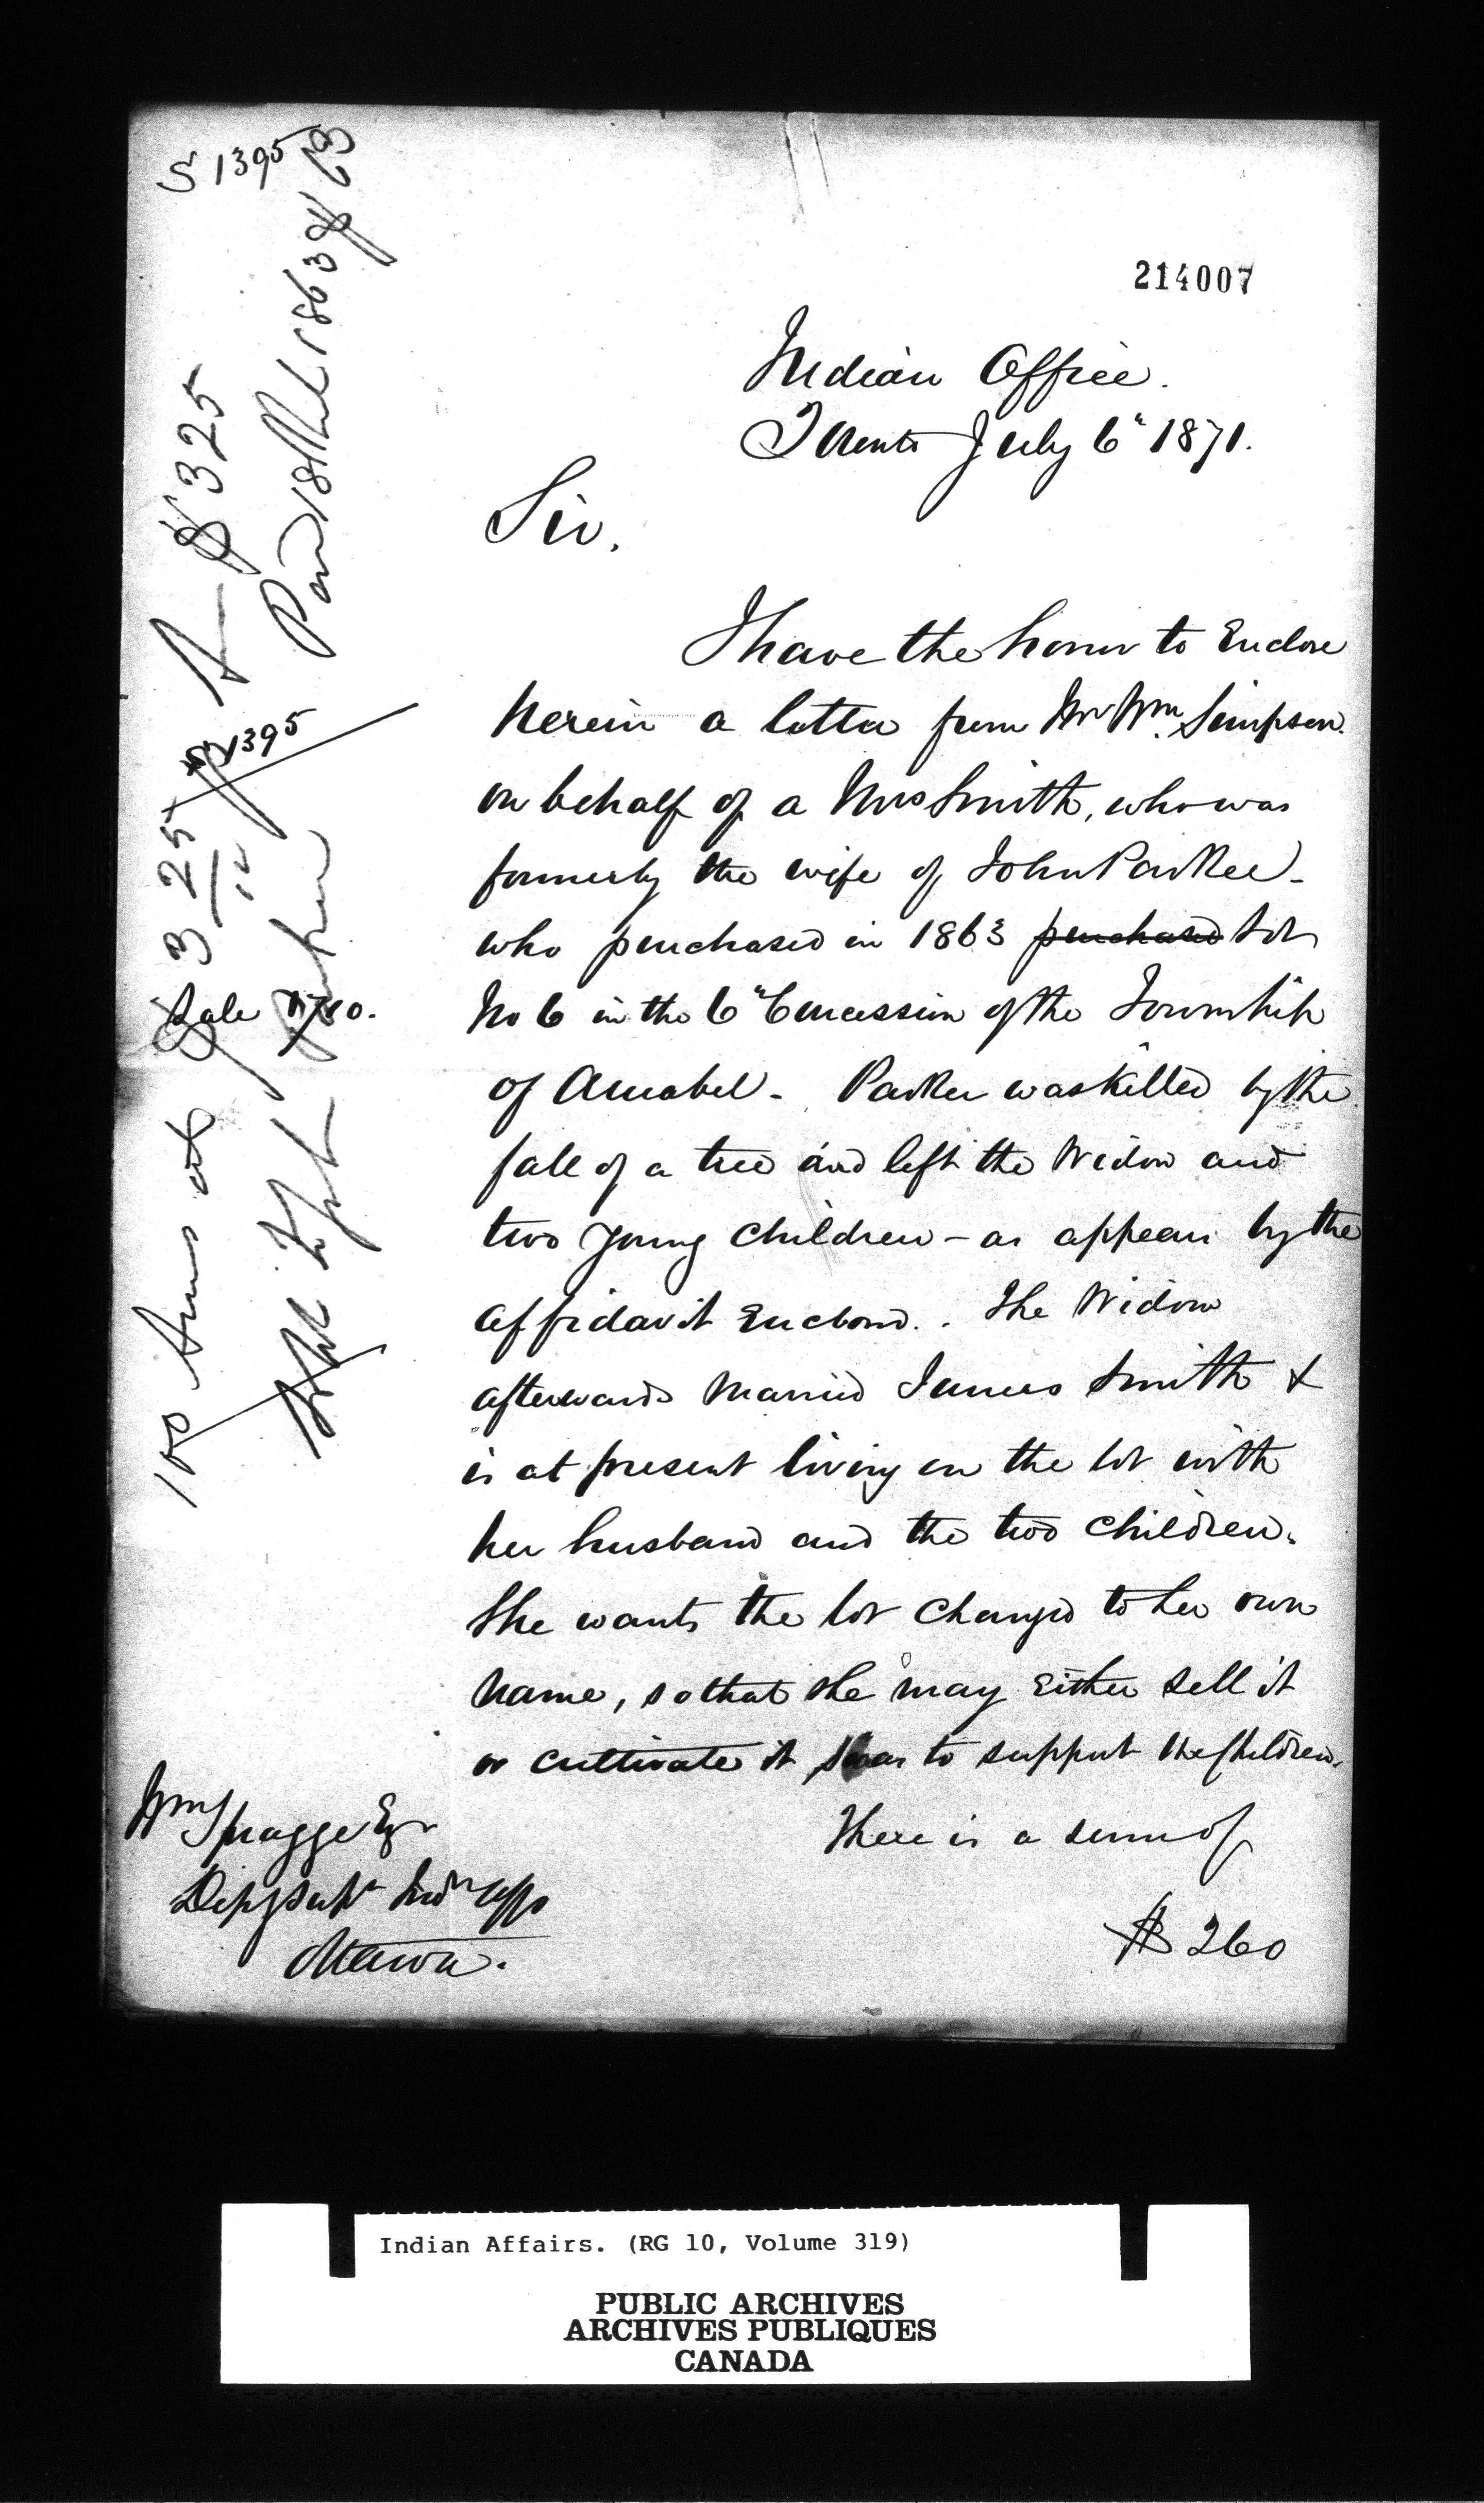 S 1395
214007
Indian Office.
Toronto July 6" 1871.
Sir,
I have the honor to Enclose
herein a letter from Mr Wm. Simpson
on behalf of a Mrs Smith, who was
formerly the wife of John Parker
who purchased in 1863 purchased Lot
No 6 in the 6" Concession of the Township
of Amabel - Parker was killed by the
fall of a tree and left the Widow and
two young children - as appears by the
affidavit Enclosed. The Widow
afterwards married James Smith &
is at present living on the lot with
her husband and the two children.
She wants the lot changed to her own
name, so that she may Either sell it
or cultivate it so as to support the children.
There is a sum of
$260
Wm Spragge Esqr
Depy Supt Indn Affs
Ottawa.
100 Acres at $3 25
$325
S 1395
Sale 1780.
Paid 18 1863 $ 63
Indian Affairs. (RG 10, Volume 319)
PUBLIC ARCHIVES
ARCHIVES PUBLIQUES
CANADA